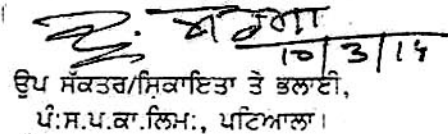 10/3/15
ਉਪ ਸੱਕਤਰ/ਸ਼ਿਕਾਇਤਾ ਤੇ ਭਲਾਈ,
ਪੰ:ਸ.ਪ.ਕਾ.ਲਿਮ:, ਪਟਿਆਲਾ।